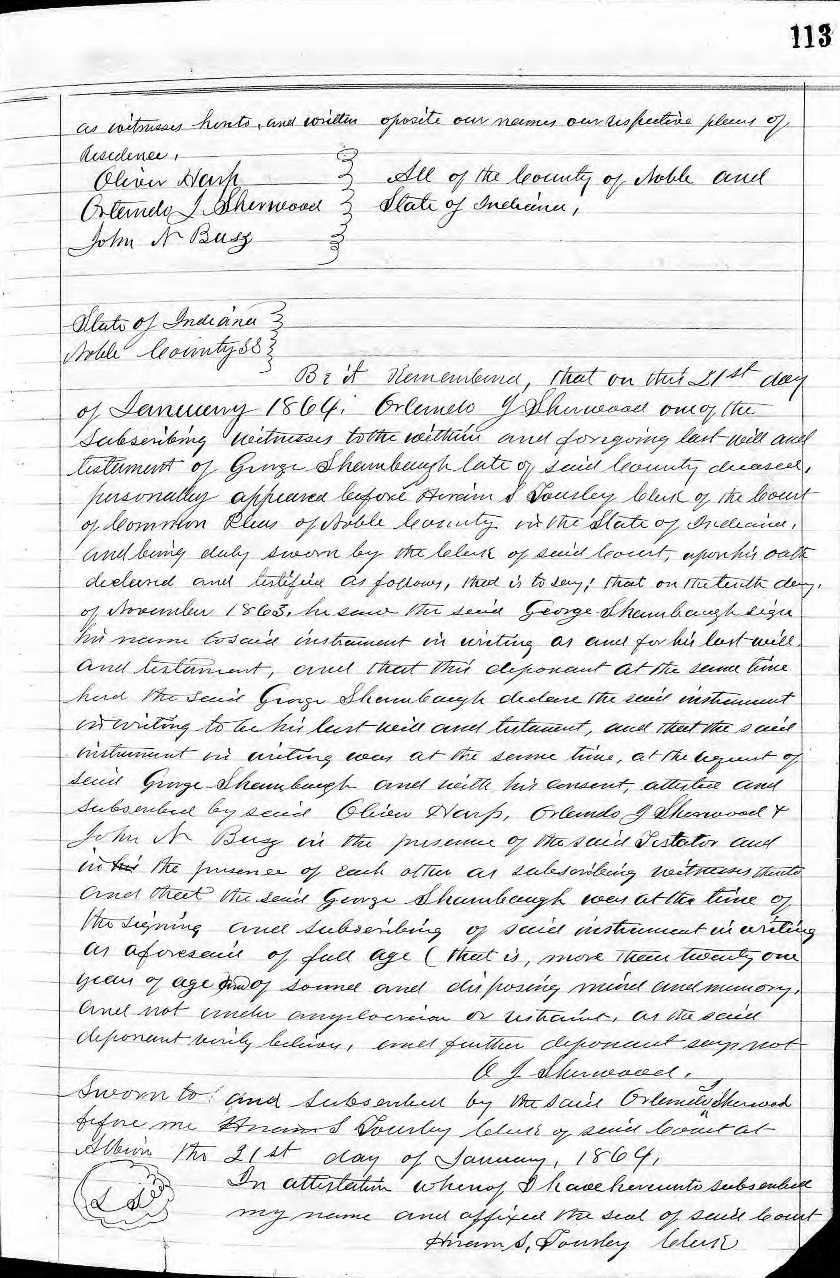 113
as witnesses hereto, and written oposite our names our respective places of
Residence,
Oliver Harp
Orlando J. Sherwood
John N Busz
All of the County of Noble and
State of Indiana,
State of Indiana
Noble County SS
Be it Remembered, that on this 21st day
of January 1864; Orlando J Sherwood one of the
subscribing witnesses to the within and foregoing last will and
testament of George Shambaugh late of said County deceased,
personally appeared before Hiram S Tousley Clerk of the Court
of Common Pleas of Noble County in the State of Indiana,
and being duly sworn by the Clerk of said Court, upon his oath
declared and testified as follows, that is to say; that on the tenth day,
of November 1863, he saw the said George Shambaugh sign
his name to said instrument in writing as and for his last will,
and testament, and that this deponant at the same time
herd the said George Shambaugh declare the said instrument
in writing to be his last will and testament, and that the said
instrument in writing was at the same time, at the request of
said George Shambaugh and with his consent, attested and
subscribed by said Oliver Harp, Orlando J Sherwood &
John N Busz in the presence of the said Testator and
in his the presence of each other as subscribing witnesses thereto
and that the said George Shambaugh was at the time of
the signing and subscribing of said instrument in writing
as aforesaid of full age ( that is, more than twenty one
years of age and of sound and disposing mind and memory,
and not under any coercion or restraint, as the said
deponant verily believes, and further deponant says not
O J Sherwood,
Sworn to and subscribed by the said Orlando J Sherwood
before me Hiram S Tousley Clerk of said Court at
Albion the 21st day of January, 1864,
L Seal
In attestation whereof I have hereunto subscribed
my name and affixed the seal of said Court
Hiram S, Tousley Clerk